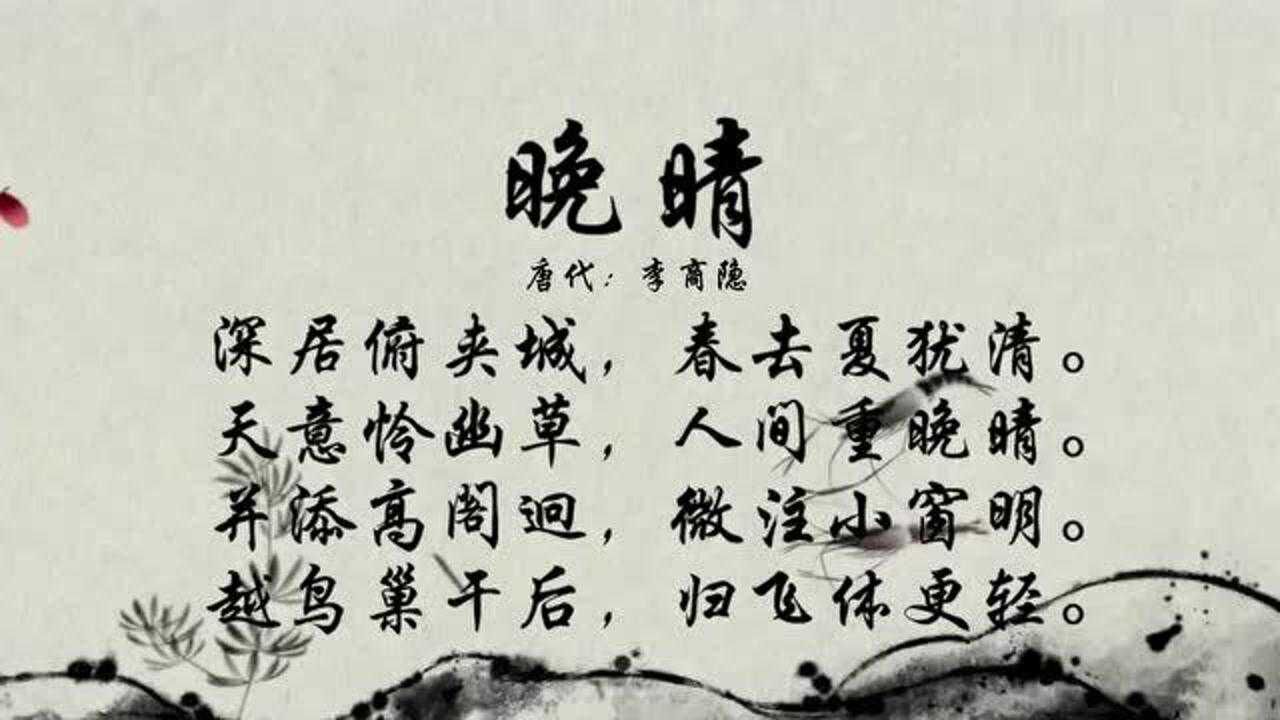 晚晴
唐代：李商隐
深居俯夹城，春去夏犹清。
天意怜幽草，人间重晚晴。
并添高阁迥，微注小窗明。
越鸟巢干后，归飞体更轻。